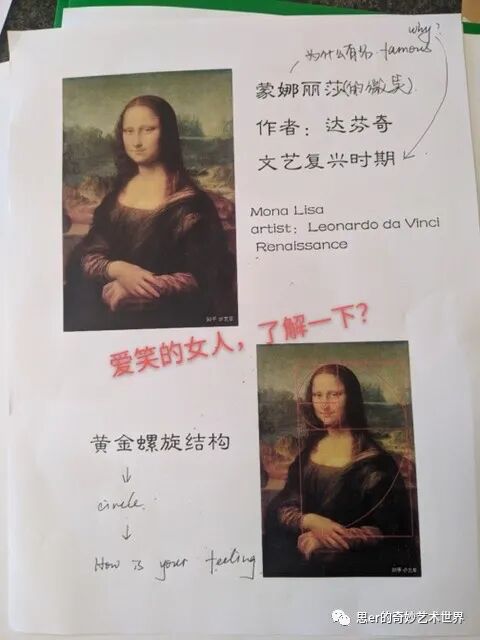 why?
为什么有名 famous
蒙娜丽莎(的微笑)
作者：达芬奇
文艺复兴时期
Mona Lisa
artist：Leonardo da Vinci
Renaissance
知乎 @艺菲
爱笑的女人，了解一下？
黄金螺旋结构
circle.
How is your feeling
思er的奇妙艺术世界